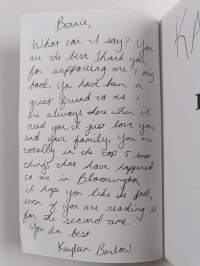 Bonnie,
What can I say? You
are the best. Thank you
for supporting me & my
book. You have been a
great friend to me &
are always there when I
need you. I just love you
and your family. You are
totally in the top 5 best
things that have happened
to me in Bloomington.
I hope you like the book,
even if you are reading it
for the second time.
You da best
Kayleen Barlow
KA